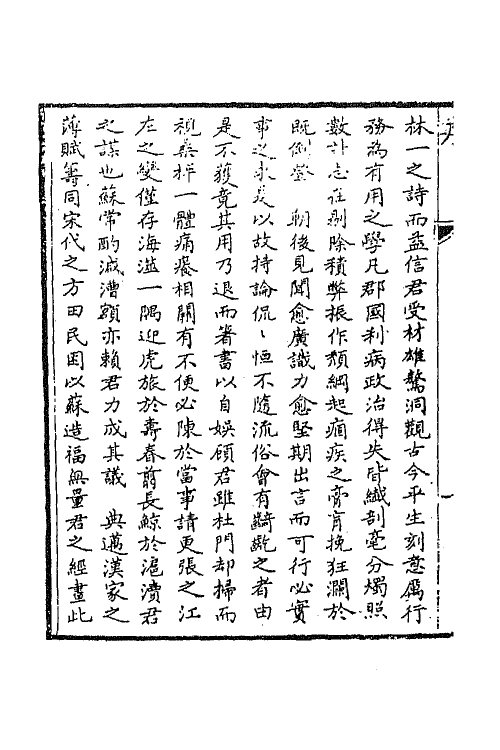 林一之詩而益信君受材雄驁洞觀古今平生刻意厲行
務為有用之學凡郡國利病政治得失皆纖剖毫分燭照
數計志在剔除積弊振作頹綱起痼疾之膏肓挽狂瀾於
既倒登 朝後見聞愈廣識力愈堅期出言而可行必實
事之求是以故持論侃〻恒不隨流俗會有齮齕之者由
是不獲竟其用乃退而箸書以自娛顧君雖杜門却掃而
視桑梓一體痛癢相關有不便必陳於當事請更張之江
左之變僅存海澨一隅迎虎旅於壽春剪長鯨於滬瀆君
之謀也蘇常酌減漕額亦賴君力成其議 典邁漢家之
薄賦籌同宋代之方田民困以蘇造福無量君之經畫此